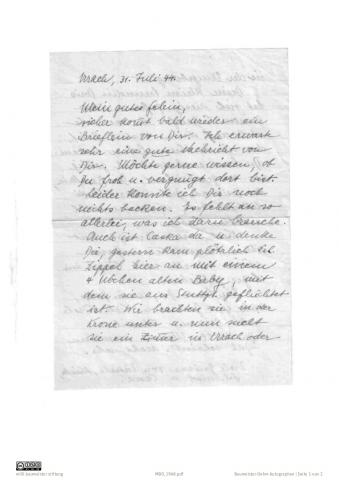 Urach, 31. Juli 44.
Mein gutes
sicher kommt bald wieder ein
Brieflein von Dir. Ich erwarte
sehr eine gute Nachricht von
Dir. Möchte gerne wissen, ob
Du froh u. vergnügt dort bist.
Leider konnte ich Dir noch
nichts backen. Es fehlt an so
allerlei, was ich dazu brauche.
Auch ist da u. denke
Dir, gestern kam plötzlich
Zippel hier an mit einem
4 Wochen alten Baby, mit
dem sie aus Stuttgt geflüchtet
ist. Wir brachten sie in der
Krone unter u. nun sucht
sie ein Zimmer in Urach oder
willi baumeister stiftung
Baumeister-Gehm-Autographen | Seite 1 von 2